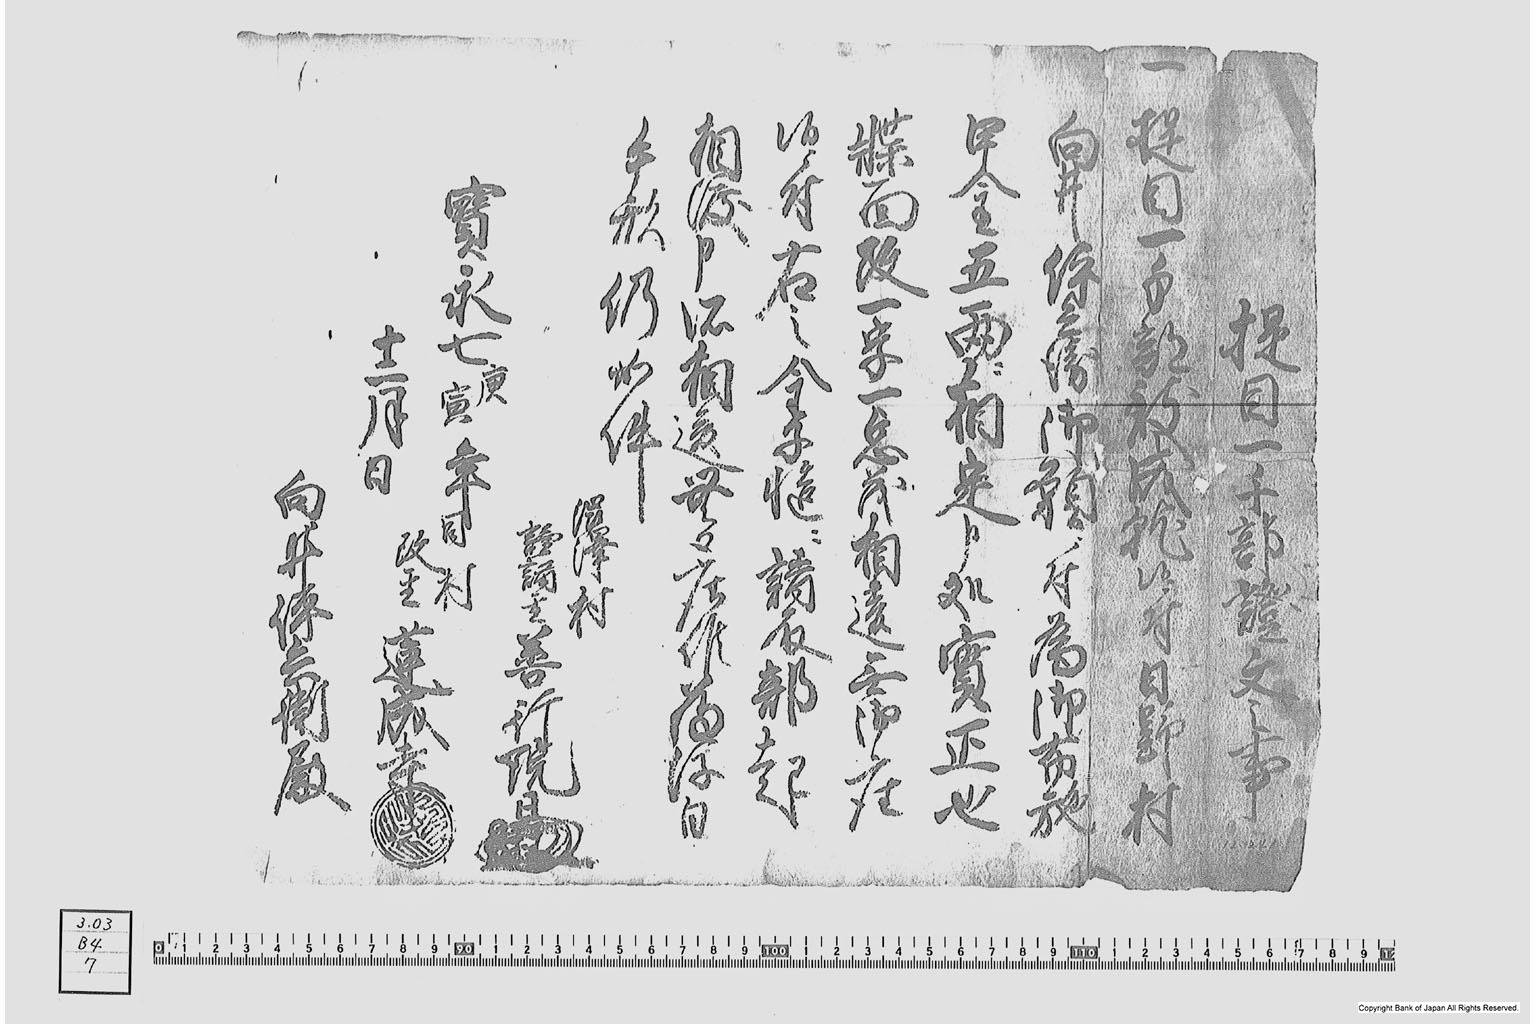 提目一千部證文之事
一提目一千部被成就候ニ付日野村
向井傳兵衛御願ニ付為御布施
甲金五両ニ相定申処實正也
牒面改一字一点茂相違無御座
候ニ付右之金子慥ニ請取部起
相渡申候相違無御座候為後日
手形仍如件
澤村
讀誦主善行院日
寳永七庚寅年同村
改主蓮成寺
十二月日
向井傳兵衛殿
3.03
B4
7
0 1 2 3 4 5 6 7 8 9 90 1 2 3 4 5 6 7 8 9 100 1 2 3 4 5 6 7 8 9 110 1 2 3 4 5 6 7 8 9 12
Copyright Bank of Japan All Rights Reserved.